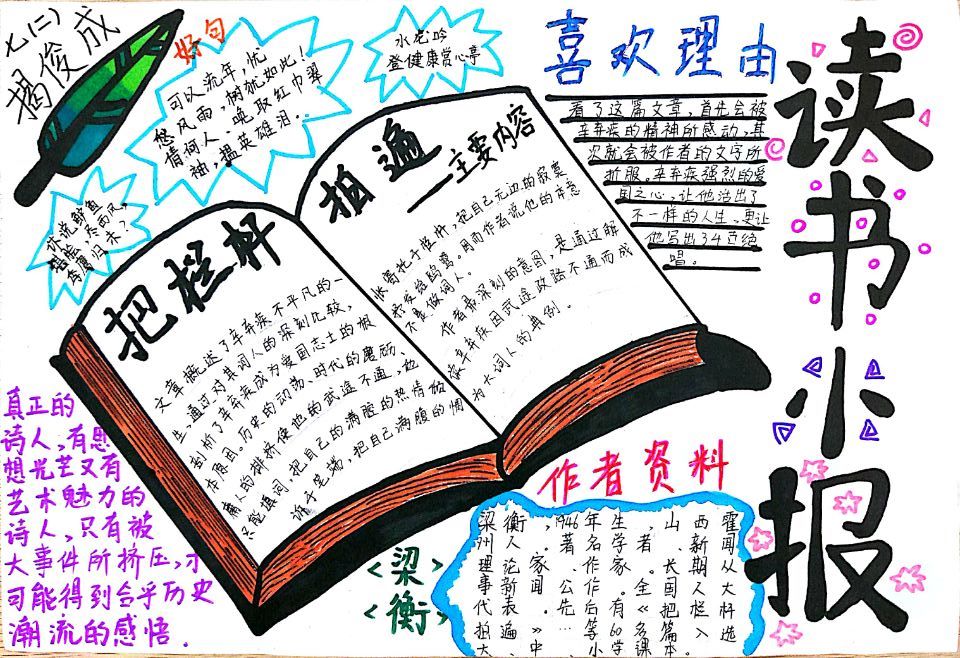 读书小报
七(二)
揭俊成
好句
可以流年,忧
愁风雨,树犹如此!
倩何人、唤取红巾翠
袖,揾英雄泪…
水龙吟
登健康赏心亭
休说鲈鱼
堪脍,尽西风,
季鹰归未?
喜欢理由
看了这篇文章,首先会被
辛弃疾的精神所感动,其
次就会被作者的文字所
折服,辛弃疾强烈的爱
国之心,让他活出了
不一样的人生、更让
他写出了4页绝
唱。
把栏杆
文章概述了辛弃疾不平凡的一
生,通过对其词人的深刻比较,
剖析了辛弃疾成为爱国志士的根
本原因。历史的动荡、时代的磨砺、
庸人的排挤使他的武途不通,他
只能填词,把自己的满腔的热情倾
诸于笔端,把自己满腹的惆
拍遍
主要内容
怅寄托于栏杆,把自己无边的寂寞
抒发给鸥鹭。用而作者说他的本意
不是做词人。
作者最深刻的意图,是通过解
读辛弃疾因武途政路不通而成
为大词人的典例。
真正的
诗人,有思
想光艺又有
艺术魅力的
诗人,只有被
大事件所挤压,才
可能得到合乎历史
潮流的感悟.
<梁>
<衡>
作者资料
梁衡,1946年生,山西霍
州人。著名学者、新闻
理论家、作家。长期从
事新闻公作。全国人大
代表。先后有《把栏杆
拍遍》…等60多篇入选
大、中、小学课本。